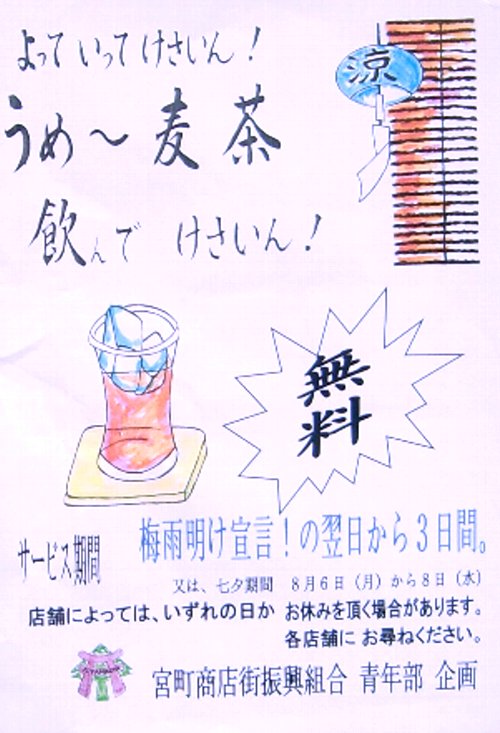 よって いって けさいん！
うめ～ 麦 茶
飲んで けさいん！
涼
無料
サービス期間
梅雨明け宣言！の翌日から３日間。
又は、七夕期間 ８月６日（月）から８日（水）
店舗によっては、いずれの日か お休みを頂く場合があります。
各店舗に お尋ねください。
宮町商店街振興組合 青年部 企画